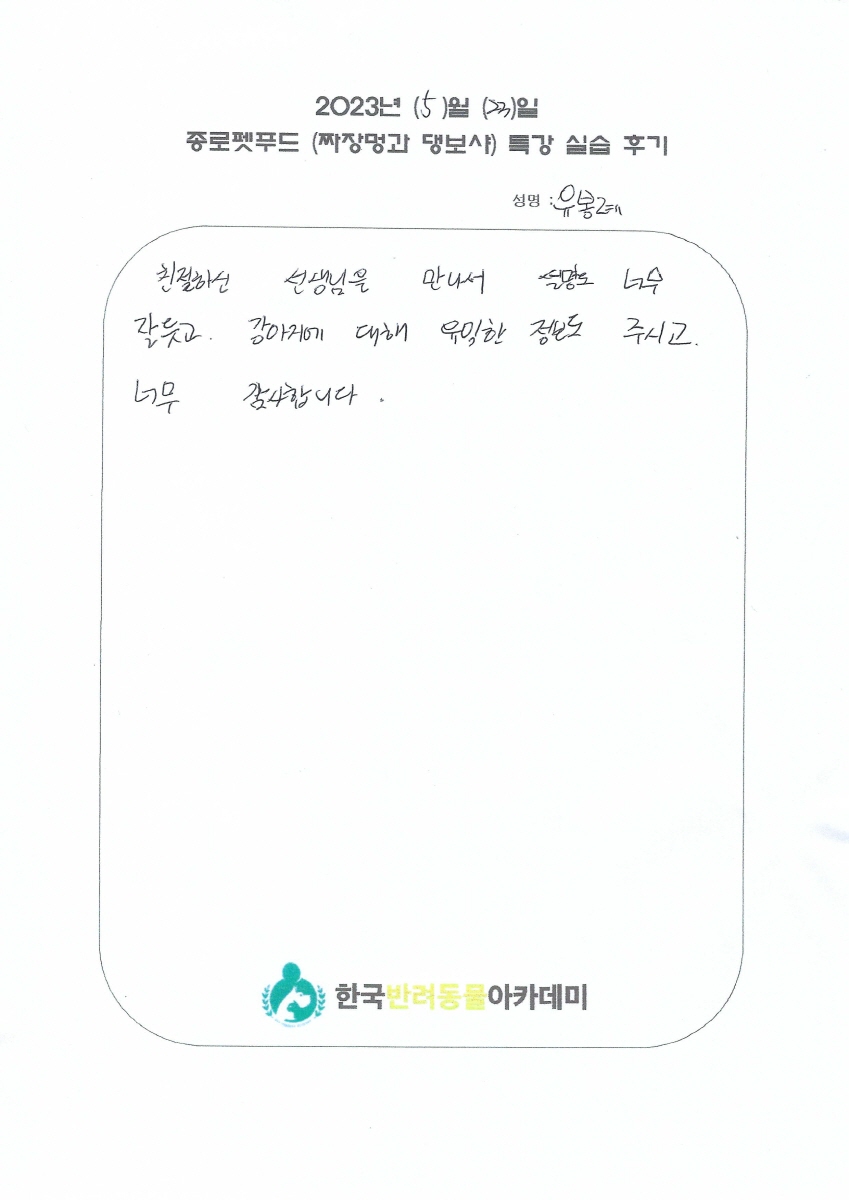 2023년 (5)월 (23)일
종로펫푸드 (짜장멍과 댕보샤) 특강 실습 후기
성명 : 유봉례
친절하신 선생님을 만나서 설명도 너무
잘듯고. 강아지에 대해 유익한 정보도 주시고.
너무 감사합니다.
한국반려동물아카데미